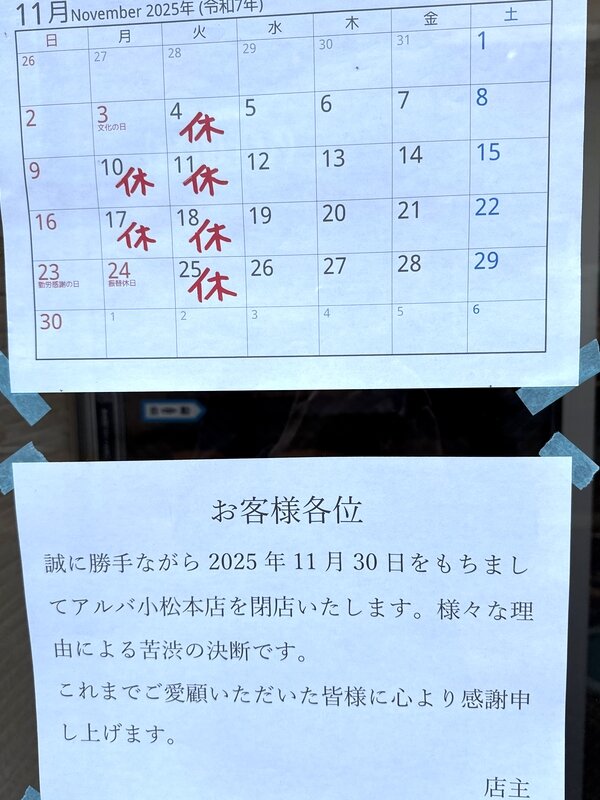 11月 November 2025年 (令和7年)
日 月 火 水 木 金 土
26 27 28 29 30 31 1
2 3 文化の日 4 休 5 6 7 8
9 10 休 11 休 12 13 14 15
16 17 休 18 休 19 20 21 22
23 勤労感謝の日 24 振替休日 25 休 26 27 28 29
30 1 2 3 4 5 6
お客様各位
誠に勝手ながら 2025 年 11 月 30 日をもちまし
てアルバ小松本店を閉店いたします。様々な理
由による苦渋の決断です。
これまでご愛顧いただいた皆様に心より感謝申
し上げます。
店主